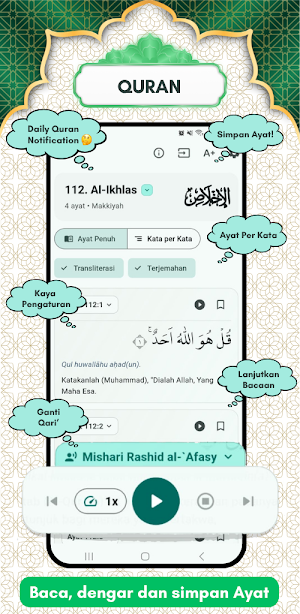 QURAN
Daily Quran
Notification 🤔
Simpan Ayat!
A+
112. Al-Ikhlas
4 ayat • Makkiyah
الإخلاص
Ayat Per Kata
Ayat Penuh
Kata per Kata
Transliterasi
Terjemahan
Kaya
Pengaturan
112:1
قُلْ هُوَ اللَّهُ أَحَدٌ ۚ ١
Qul huwallāhu aḥad(un).
Katakanlah (Muhammad), "Dialah Allah, Yang
Maha Esa.
Lanjutkan
Bacaan
Ganti
Qari'
112:2
Mishari Rashid al-`Afasy
1x
Baca, dengar dan simpan Ayat